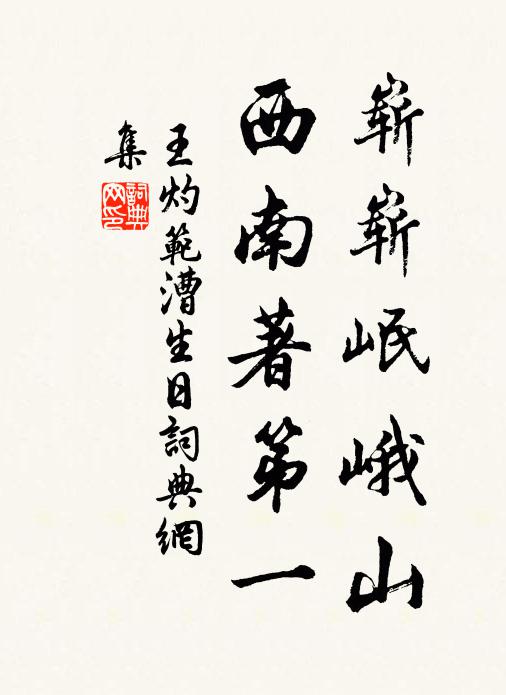 嶄嶄岷峨山
西南著第一
王灼範漕生日詞典網
集
詞典网印